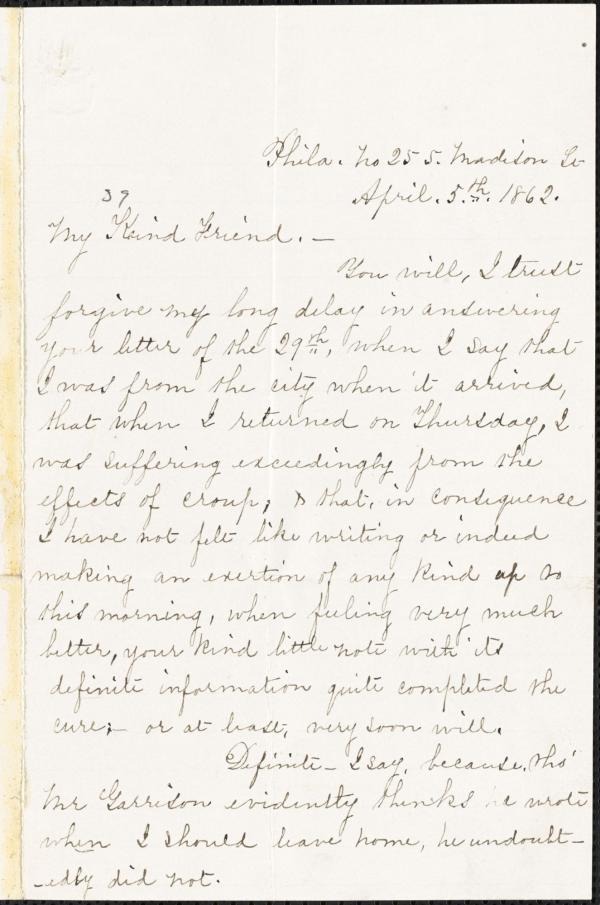 Phila. No 25 S. Madison St
April. 5.th. 1862.
39
My Kind Friend. —
You will, I trust
forgive my long delay in answering
your letter of the 29th, when I say that
I was from the city when it arrived,
that when I returned on Thursday, I
was suffering exceedingly from the
effects of croup; & that, in consequence
I have not felt like writing or indeed
making an exertion of any kind up to
this morning, when feeling very much
better, your kind little note with its
definite information quite completed the
cure;— or at least, very soon will.
Definite— I say, because, tho'
Mr Garrison evidently thinks he wrote
when I should leave home, he undoubt-
-edly did not.